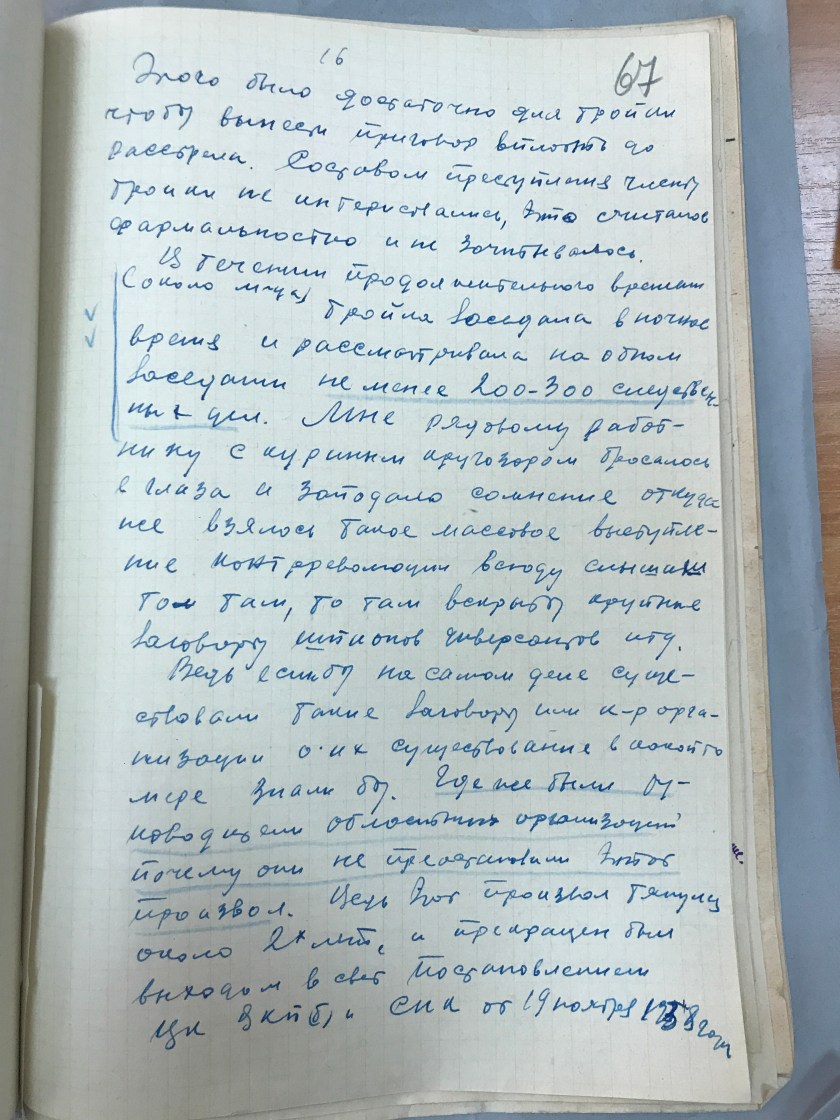 16
67
Этого было достаточно для тройки
чтобы вынести приговор вплоть до
расстрела. Составом преступления члены
тройки не интересовались, это считалось
формальностью и не зачитывалось.
В течении продолжительного времени
(около м-ца) тройка заседала в ночное
время и рассматривала на одном
заседании не менее 200-300 следствен-
ных дел. Мне рядовому работ-
нику с куриным кругозором бросалось
в глаза и западало сомнение откуда
же взялось такое массовое выступле-
ние контрреволюции всюду слышим
то там, то там вскрыты крупные
заговоры шпионов диверсантов итд.
Ведь еслибы на самом деле суще-
ствовали такие заговоры или к-р орга-
низации о их существование в какой то
мере знали бы. Где же были ру-
ководители областных организаций
почему они не преостановили этот
произвол. Ведь этот произвол тянулся
около 2х лет, и прекращен был
выходом в свет Постановлением
ЦК ВКП(б) и СНК от 19 ноября 1938 года